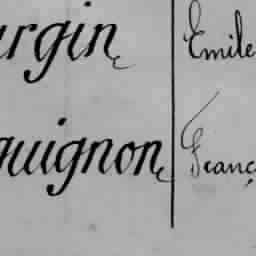 urgin Emile
quignon Franç